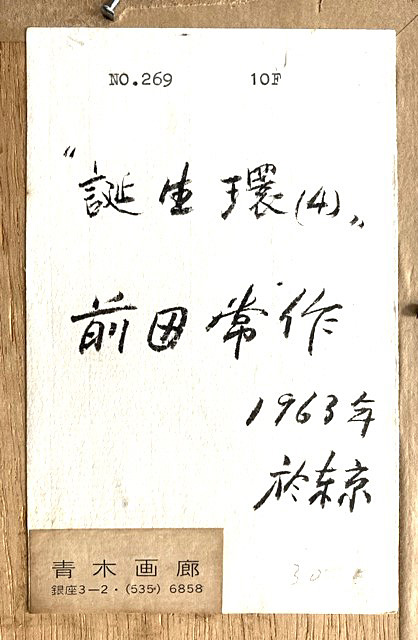 NO.269 10F
"誕生環(4)"
前田常作
1963年
於东京
青木画廊
銀座3-2・(535) 6858